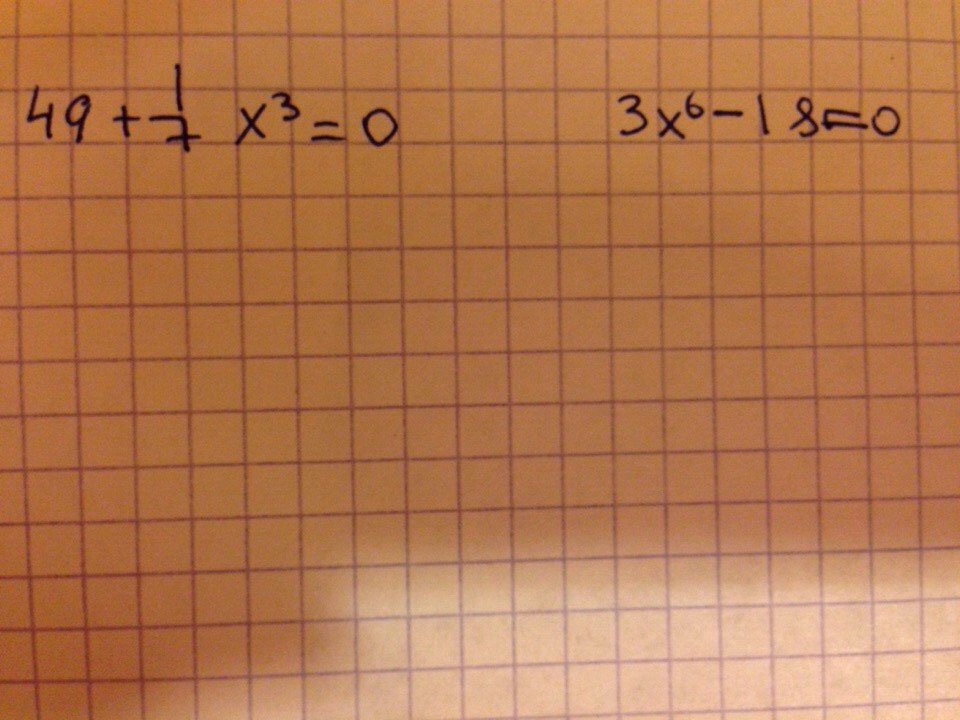 49 + 1/7 x³ = 0
3x⁶ - 18 = 0